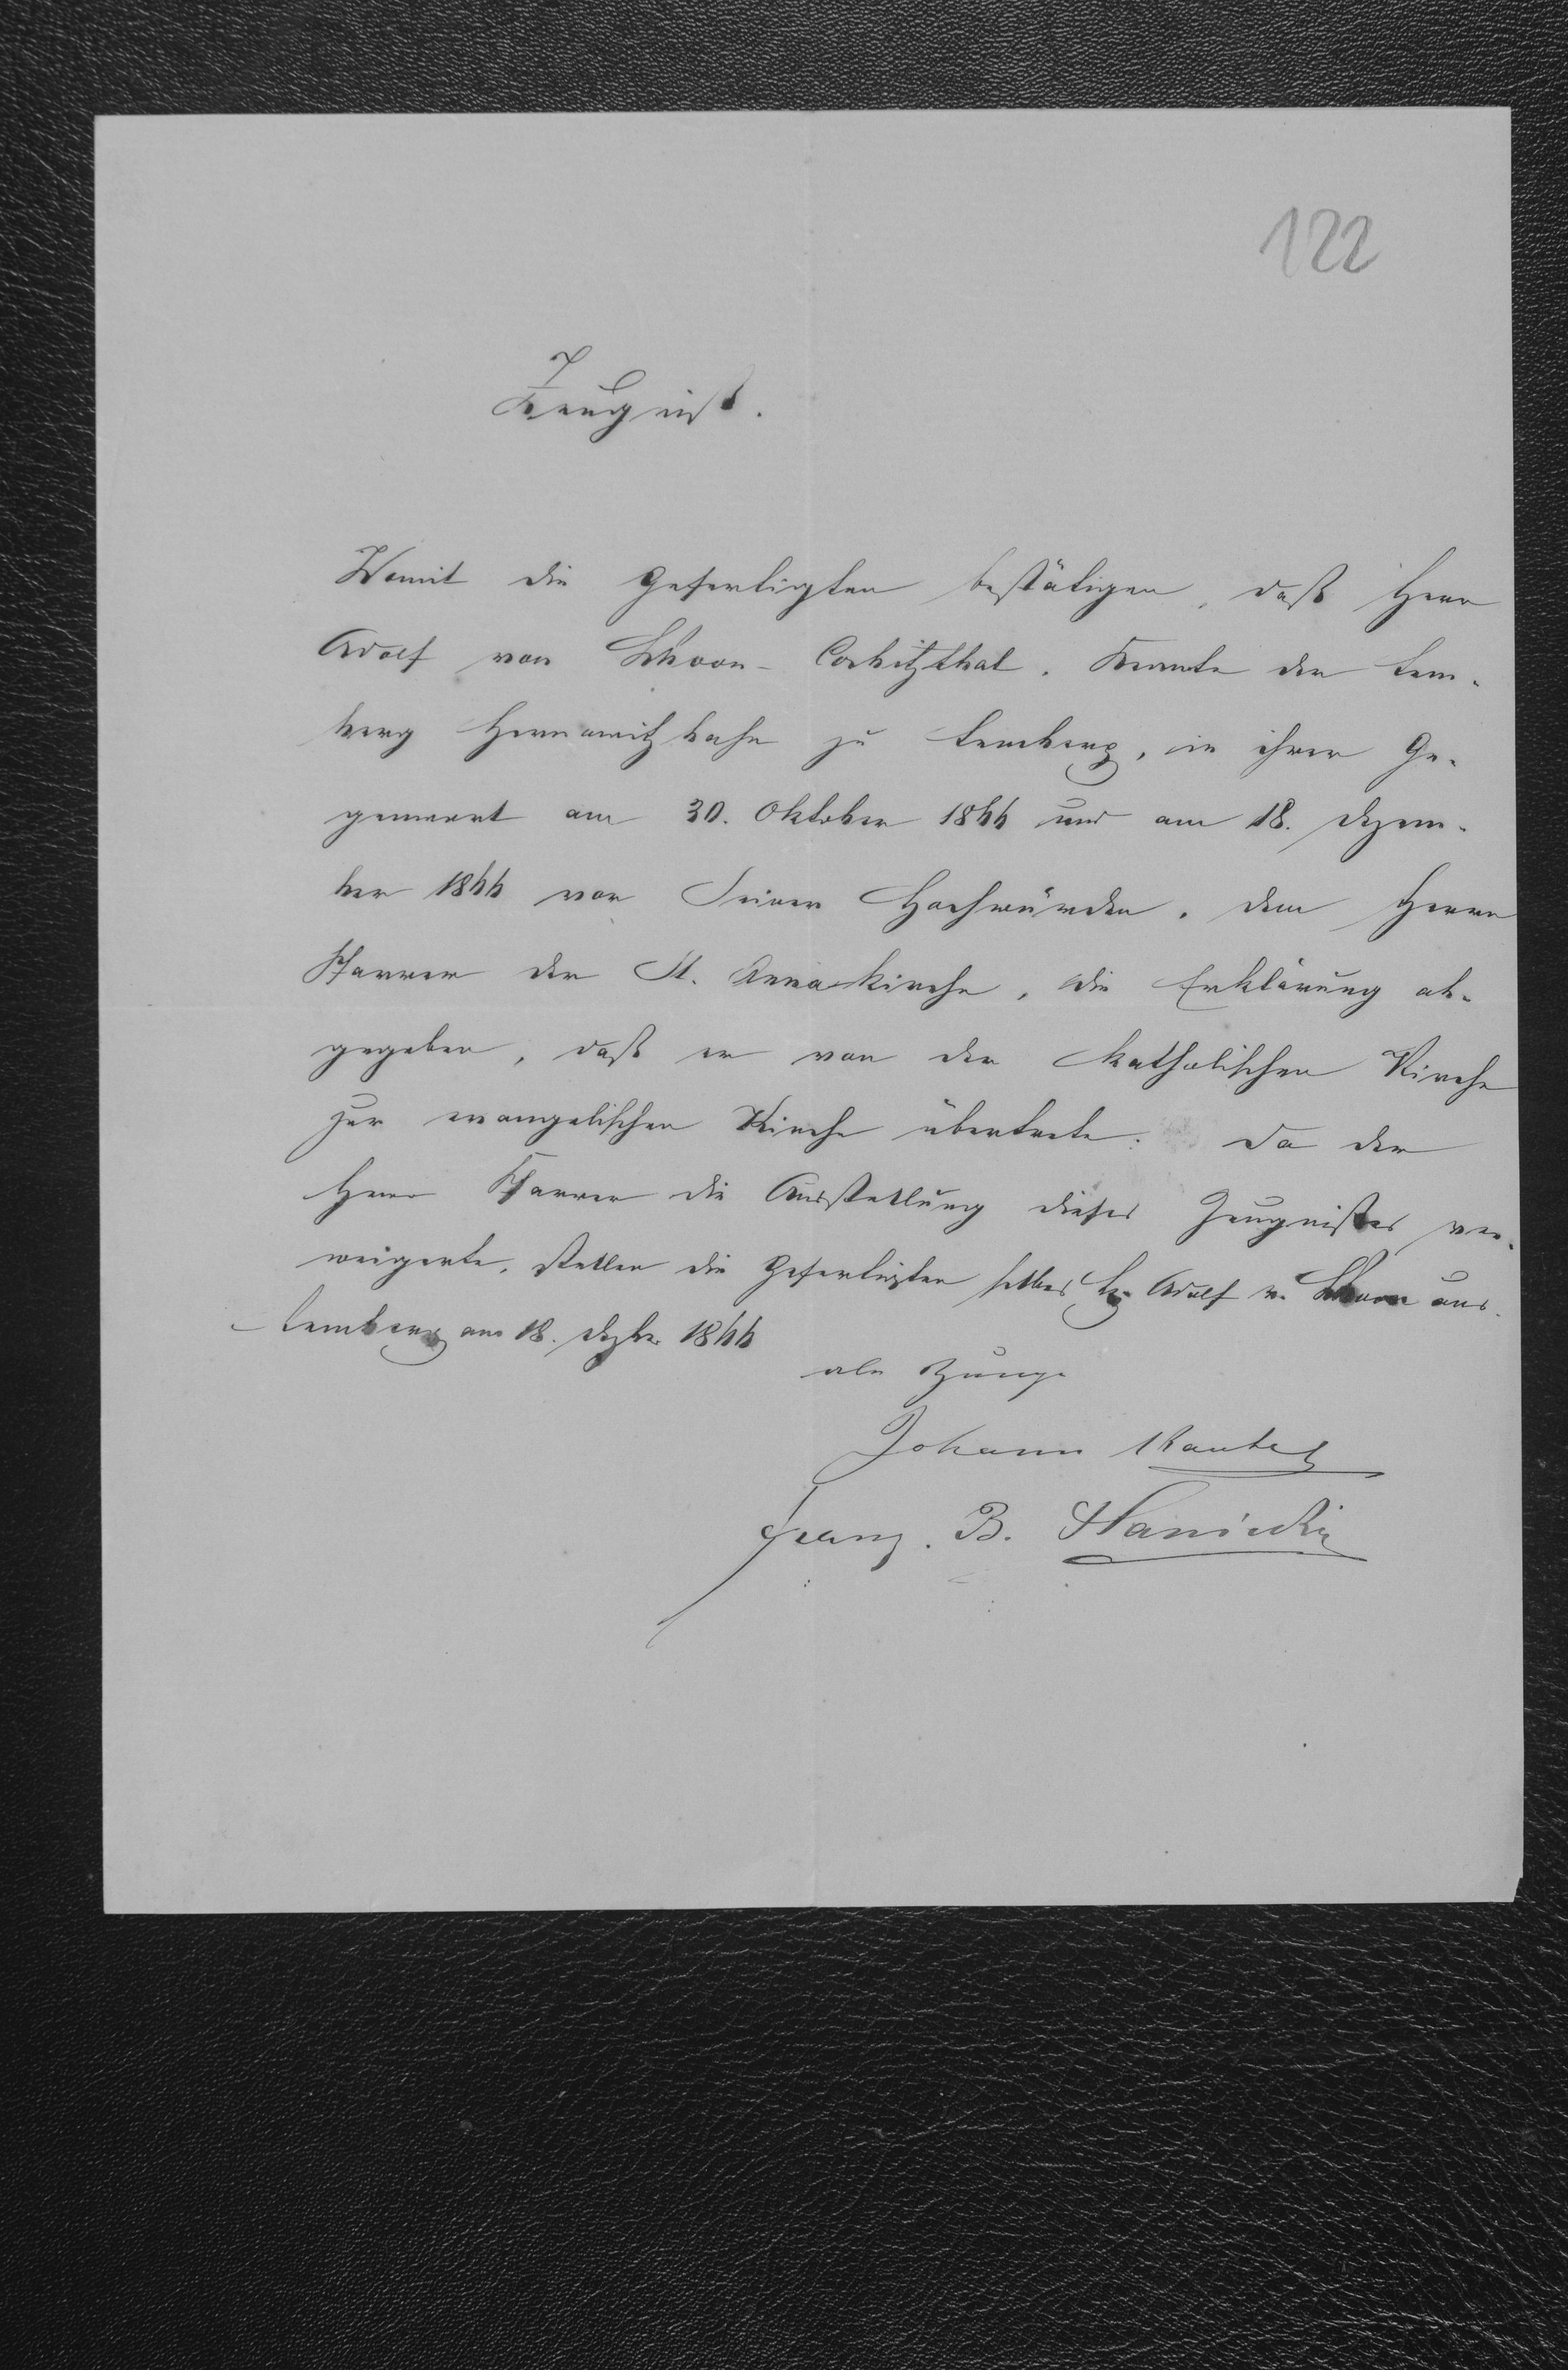 122
Zeugniß.
Womit die Gefertigten bestätigen, daß Herr
Adolf von Schoon-Corbitzthal. Beamte der Lem-
berg Czernowitzbahn zu Lemberg, in ihrer Ge-
genwart am 30. Oktober 1866 und am 18. Dezem-
ber 1866 vor Seiner Hochwürden, dem Herrn
Pfarrer der St. Annakirche, die Erklärung ab-
gegeben, daß er von der katholischen Kirche
zur evangelischen Kirche übertrete. Da der
Herr Pfarrer die Ausstellung dieses Zeugnißes ver-
weigerte, stellen die Gefertigten selbes Adolf v. Schoon aus.
Lemberg am 18. Dezbr 1866
als Zeuge
Johann
Franz. B.